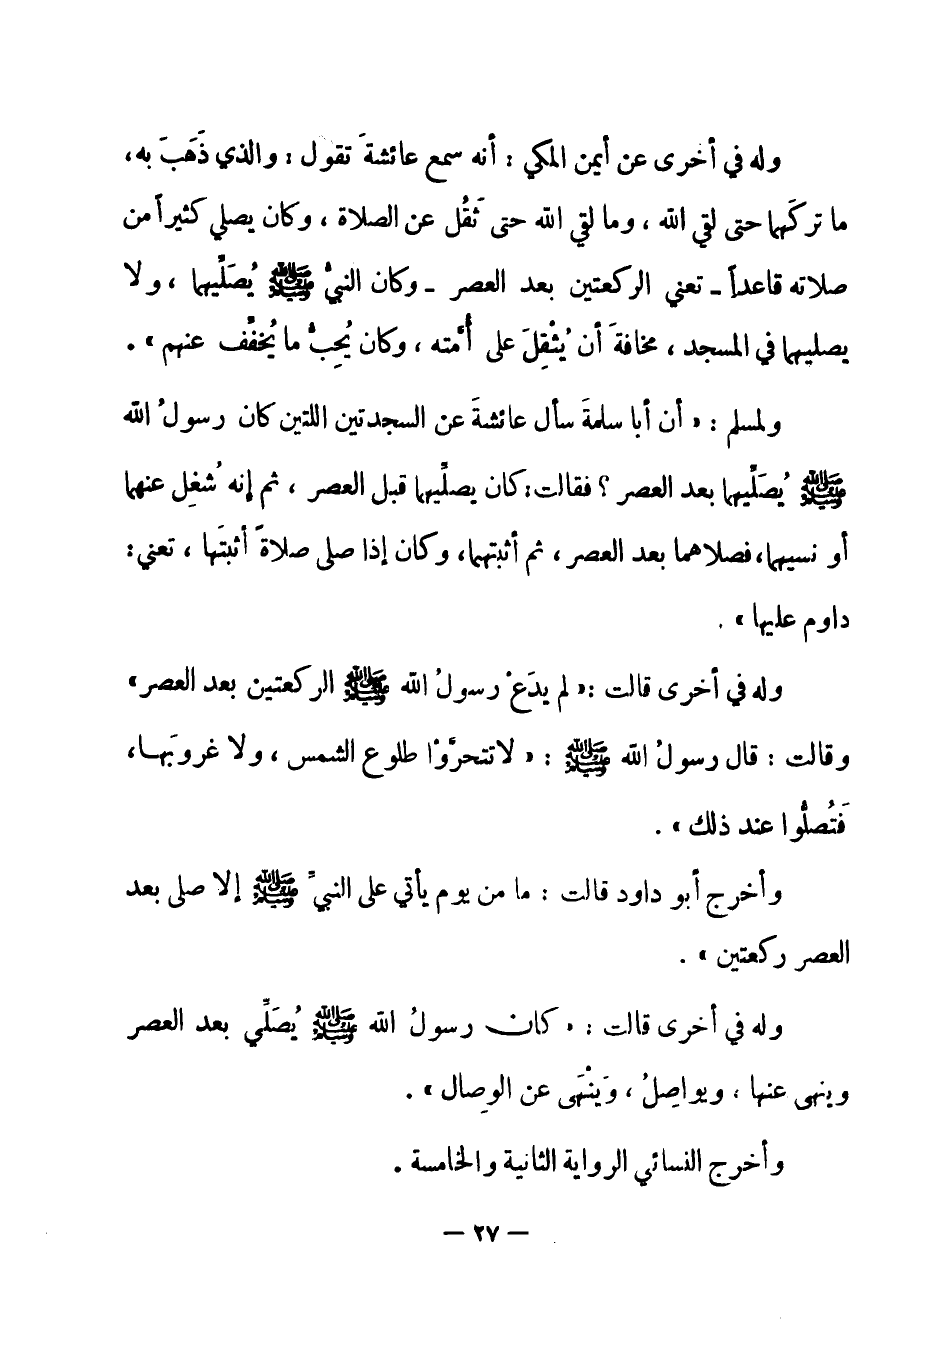 وله في أخرى عن أيمن المكي : أنه سمع عائشةَ تقول : والذي ذَهَبَ به،
ما تركَهما حتى لقي الله ، وما لقي الله حتى ثَقُل عن الصلاة ، وكان يصلي كثيراً من
صلاته قاعداً ـ تعني الركعتين بعد العصر ـ وكان النبيُّ ﷺ يُصَلِّيهما ، ولا
يصليهما في المسجد ، مخافةَ أن يُثْقِلَ على أُمَّته ، وكان يُحِبُّ ما يُخفِّف عنهم » .
ولمسلم : « أن أبا سلمةَ سأل عائشةَ عن السجدتين اللتين كان رسولُ الله
ﷺ يُصَلِّيهما بعد العصر ؟ فقالت: كان يصلِّيهما قبل العصر ، ثم إنه شُغِل عنهما
أو نسيهما، فصلاهما بعد العصر ، ثم أثبتهما، وكان إذا صلى صلاةً أثبتَها ، تعني:
داوم عليها » .
وله في أخرى قالت :« لم يدَعْ رسولُ الله ﷺ الركعتين بعد العصر»
وقالت : قال رسولُ الله ﷺ : « لاتتحرَّوْا طلوع الشمس ، ولا غروبَها،
فَتُصلُّوا عند ذلك » .
وأخرج أبو داود قالت : ما من يوم يأتي على النبيِّ ﷺ إلا صلى بعد
العصر ركعتين » .
وله في أخرى قالت : « كان رسولُ الله ﷺ يُصَلِّي بعد العصر
وينهى عنها ، ويواصِلُ ، وَيَنْهَى عن الوِصال » .
وأخرج النسائي الرواية الثانية والخامسة .
— ٢٧ —